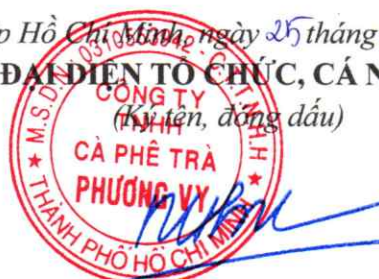 p Hồ Chí Minh, ngày 25 tháng
ĐẠI DIỆN TỔ CHỨC, CÁ N
(Ký tên, đóng dấu)
M.S.D.N: - C.T.T.N.H.H
CÔNG TY
TNHH
CÀ PHÊ TRÀ
PHƯƠNG VY
THÀNH PHỐ HỒ CHÍ MINH